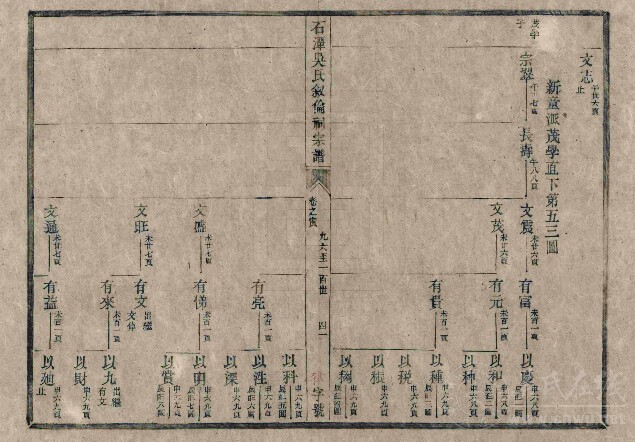 文志
午廿六頁
止
新童派茂學直下第五三圖
茂学
子
宗翠
長壽
午八八頁
文震
未廿六頁
文茂
未廿六頁
有富
未百一頁
有元
未百一頁
有貴
未百一頁
以慶
申六八頁
以和
申六八頁
以種
申六九頁
以税
申六九頁
以根
申六九頁
申六九頁
石潭吳氏敘倫祠宗譜
卷之
九六至一百世
四一
字號
文盛
未廿七頁
文旺
未廿七頁
文通
未廿七頁
有亮
未百一頁
有俤
未百一頁
有文
出繼
文偉
有來
未百一頁
有益
未百一頁
以科
申六九頁
以洼
申六九頁
以深
申六九頁
以明
申六九頁
以賞
申六九頁
以九
出繼
有文
以財
申六九頁
以廸
申六九頁
止